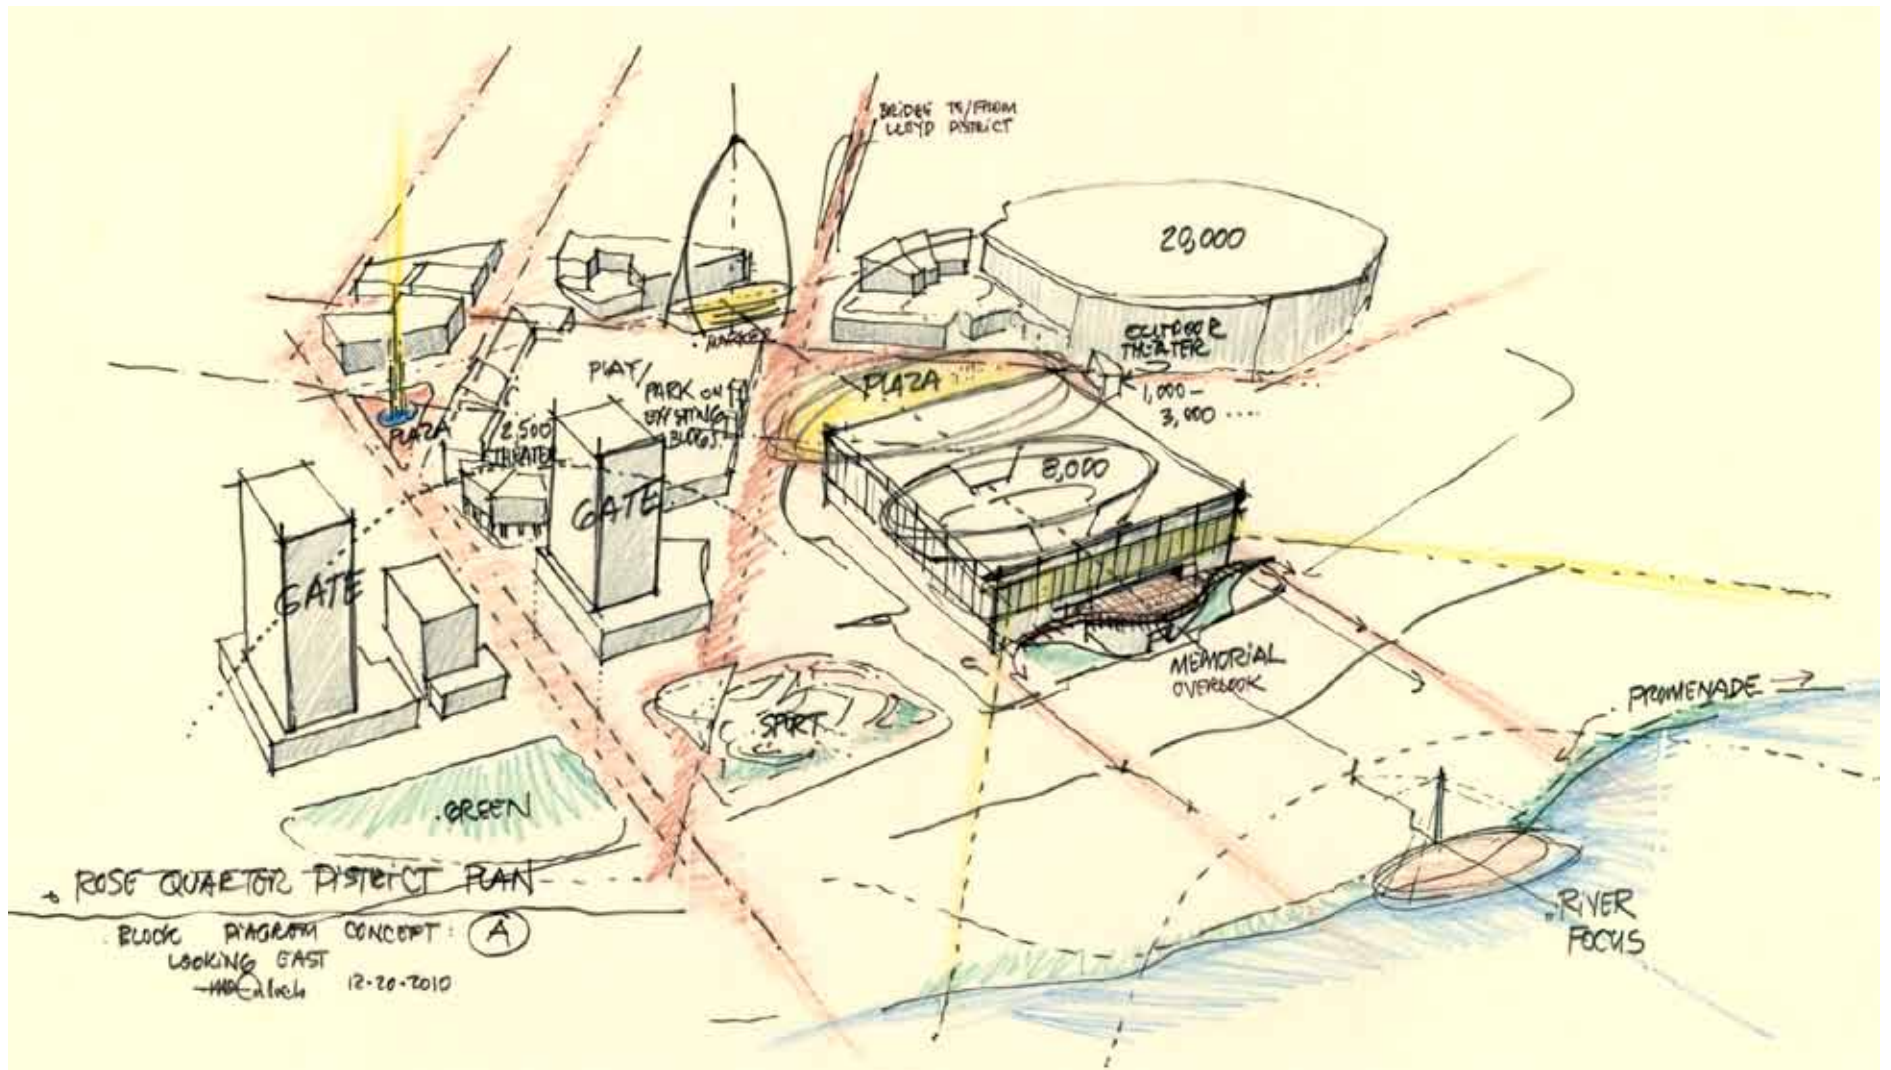 BRIDGE TO/FROM
LLOYD DISTRICT
20,000
OUTDOOR
THEATER
1,000-
3,000 ....
MARKER
PLAY/
PARK ON
EXISTING
BLDGS.
PLAZA
PLAZA
2,500
THEATER
8,000
GATE
GATE
MEMORIAL
OVERLOOK
PROMENADE
SPORT
GREEN
RIVER
FOCUS
ROSE QUARTER DISTRICT PLAN
BLOCK DIAGRAM CONCEPT: A
LOOKING EAST
12-20-2010